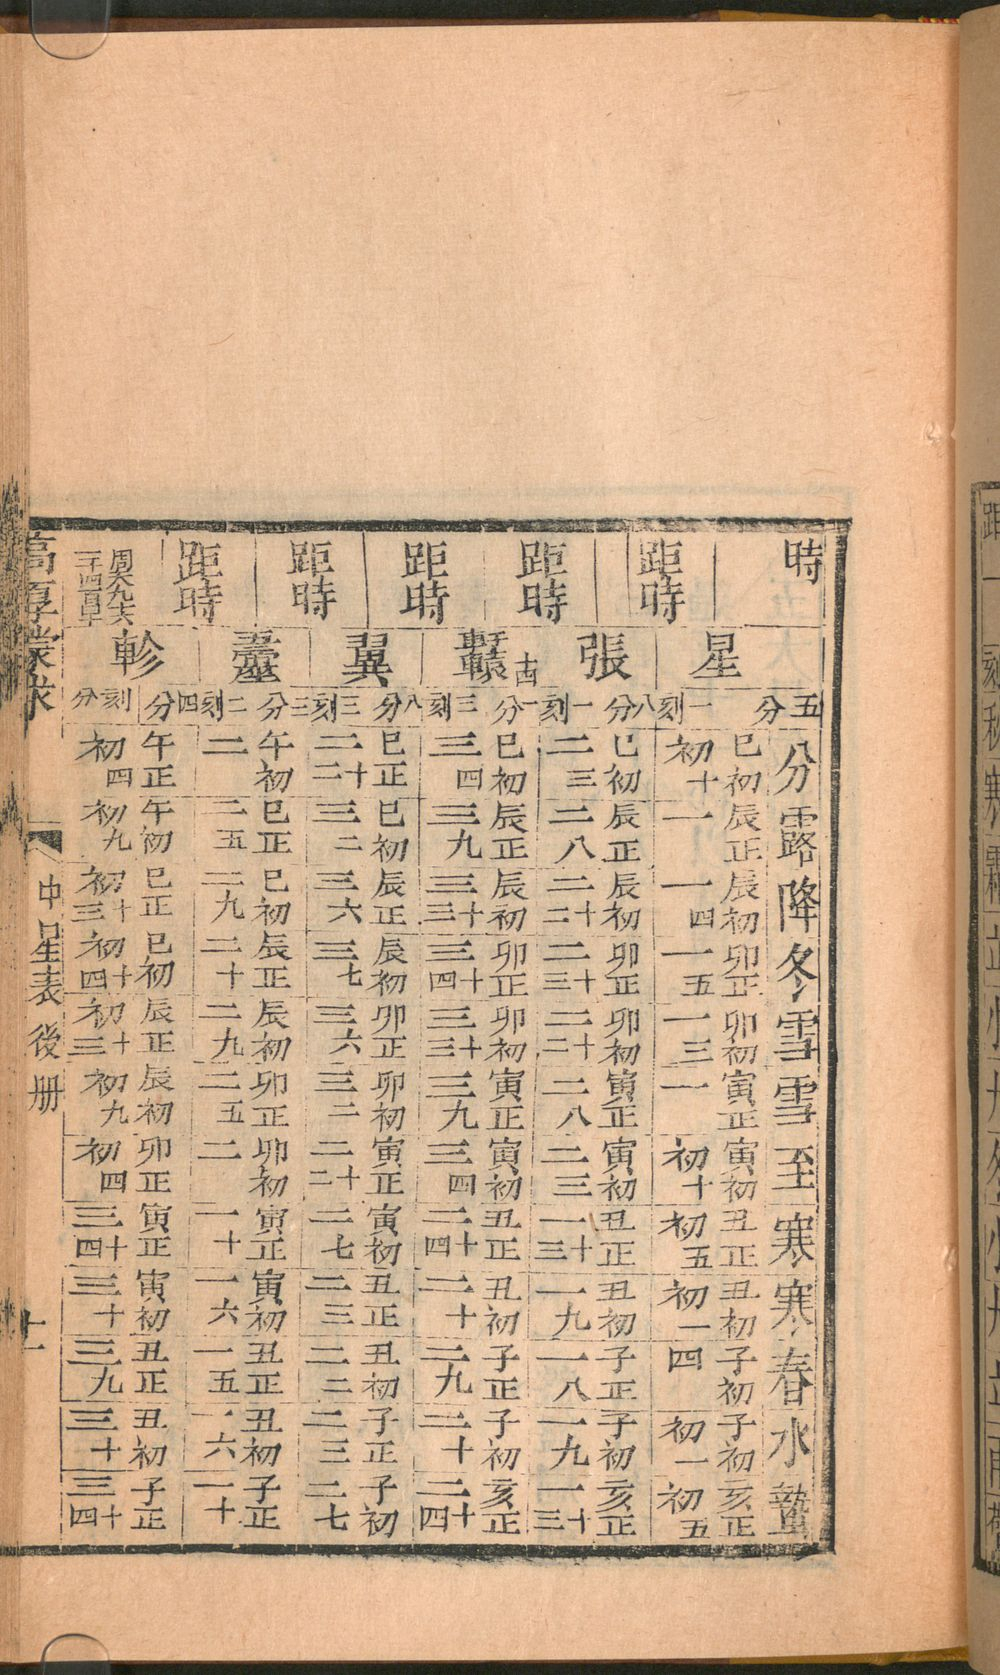 時 五分 八分 露 降 冬 雪 雪 至 寒 寒 春 水 蟄
星 一刻 巳初 辰正 辰初 卯正 卯初 寅正 寅初 丑正 丑初 子初 子初 亥正
初十 一 一四 一五 一三 一 初十 初五 初一 四 初一 初五
距時 張 八分 一刻 巳初 辰正 辰初 卯正 卯初 寅正 寅初 丑正 丑初 子正 子初 亥正
二三 二八 二十二 二十三 二十二 二八 二三 一十三 一九 一八 一九 一十三
距時 軒轅十四 一分 三刻 巳初 辰正 辰初 卯正 卯初 寅正 寅初 丑正 丑初 子正 子初 亥正
三四 三九 三十三 三十四 三十三 三九 三四 二十四 二十 二九 二十 二十四
距時 翼 八分 三刻 巳正 巳初 辰正 辰初 卯正 卯初 寅正 寅初 丑正 丑初 子正 子初
二十二 三二 三六 三七 三六 三二 二十二 二七 二三 二二 二三 二七
距時 三分 二刻 午初 巳正 巳初 辰正 辰初 卯正 卯初 寅正 寅初 丑正 丑初 子正
二 二五 二九 二十 二九 二五 二 一十 一六 一五 一六 一十
距時 軫 四分 刻分 午正 午初 巳正 巳初 辰正 辰初 卯正 寅正 寅初 丑正 丑初 子正
初四 初九 初十三 初十四 初十三 初九 初四 三十四 三十 三九 三十 三十四
高厚蒙求 中星表 後册 十一